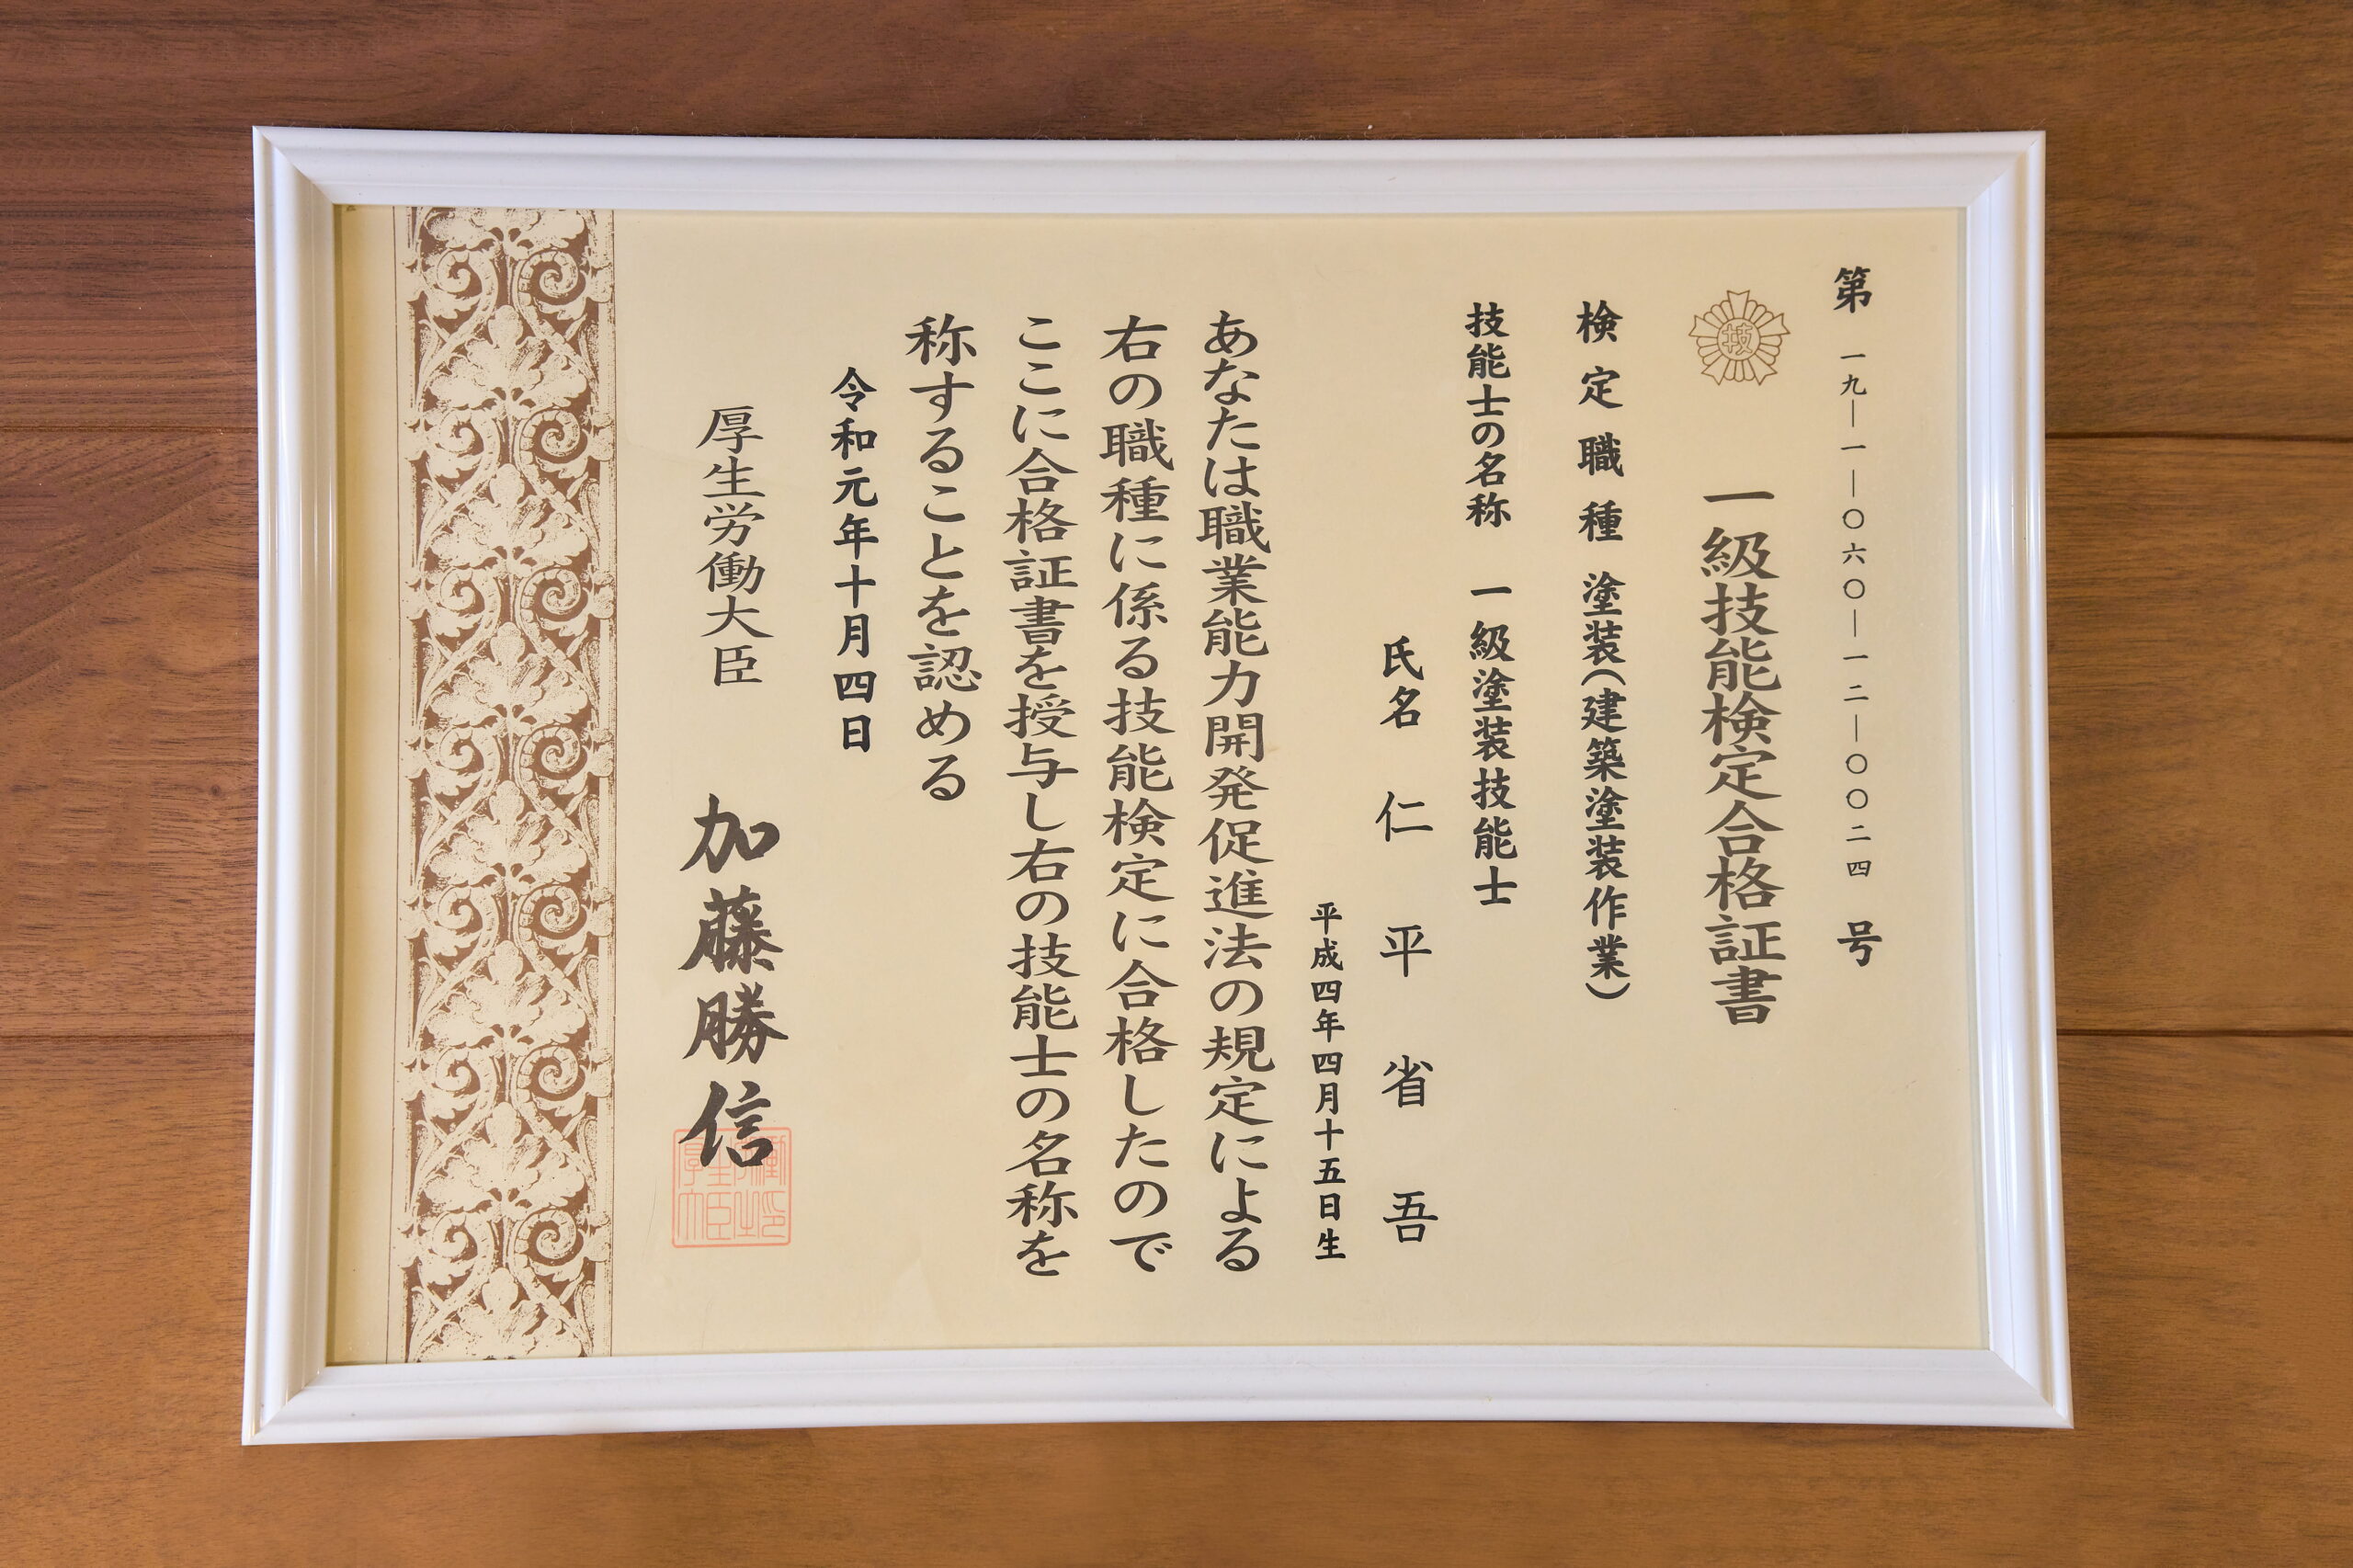 第一九―一―〇六〇―一二―〇〇二四号
技
一級技能検定合格証書
検定職種 塗装(建築塗装作業)
技能士の名称 一級塗装技能士
氏名 仁平省吾
平成四年四月十五日生
あなたは職業能力開発促進法の規定による
右の職種に係る技能検定に合格したので
ここに合格証書を授与し右の技能士の名称を
称することを認める
令和元年十月四日
厚生労働大臣 加藤勝信